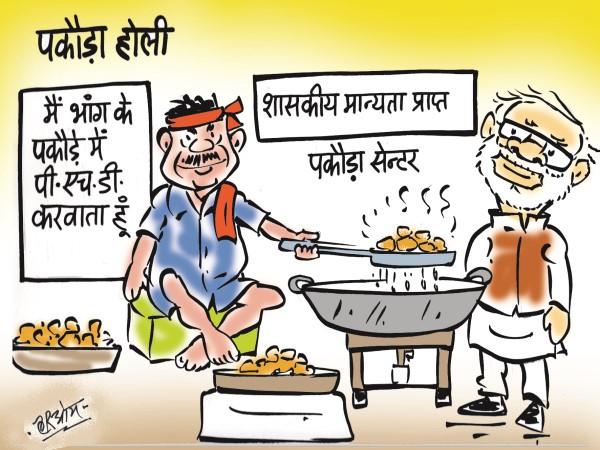 पकौड़ा होली
मैं भांग के
पकौड़े में
पी.एच.डी.
करवाता हूँ
शासकीय मान्यता प्राप्त
पकौड़ा सेन्टर